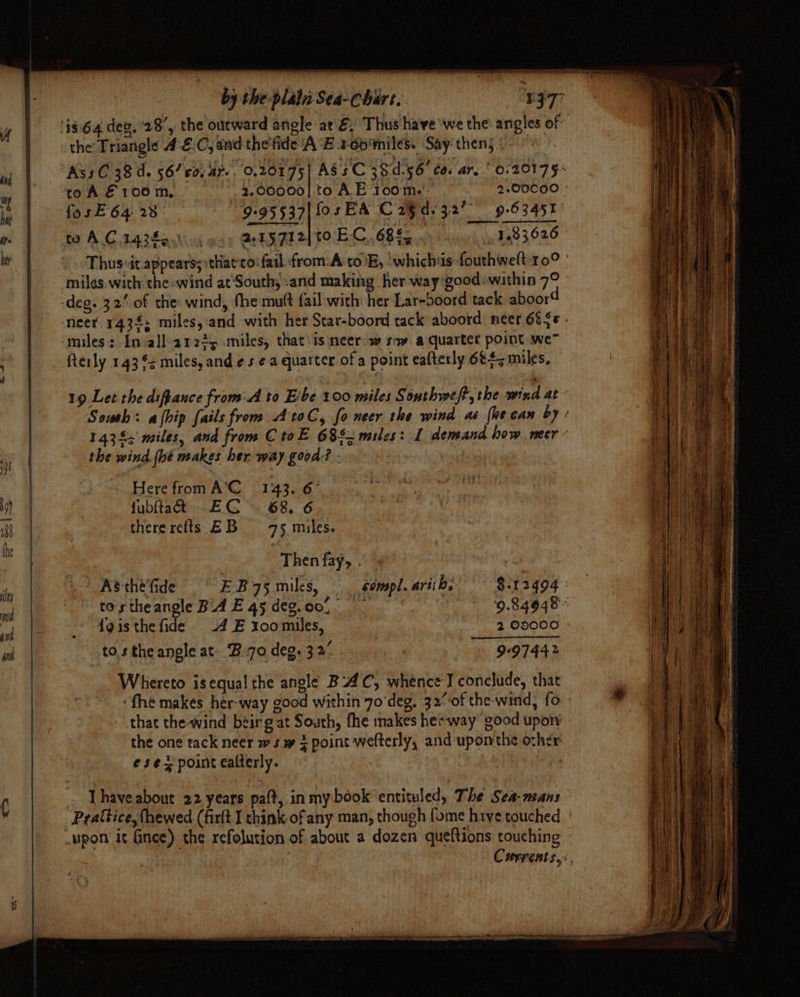 by the plain Sea-Chart. 137
is 64 deg. 28′, the outward angle at E. Thus have we the angles of
the Triangle A E C, and the ſide A E 100 miles. Say then;
As s C 38 d. 56′ co. ar. 0.20175 | As s C 38 d. 56′ co. ar. 0.20175
to A E 100 m. 2.00000 | to A E 100 m. 2.00000
ſo s E 64 28 9.95537 | ſo s EA C 25 d. 32′ 9.63451
to A C 143 2.15712 | to E C, 68 1.83626
Thus it appears, that to ſail from A to E, which is ſouthweſt 100
miles with the wind at South, and making her way good within 70
deg. 32′ of the wind, ſhe muſt ſail with her Lar-boord tack aboord
neer 143 miles, and with her Star-boord tack aboord neer 68
miles: In all 212 miles, that is neer w s w a quarter point we-
ſterly 143 miles, and e s e a quarter of a point eaſterly 68 miles.
19 Let the diſtance from A to E be 100 miles Southweſt, the wind at
South: a ſhip ſails from A to C, ſo neer the wind as ſhe can by
143 miles, and from C to E 68 miles: I demand how neer
the wind ſhe makes her way good?
Here from A C 143. 6
ſubſtact E C 68. 6
there reſts E B 75 miles.
Then ſay,
As the ſide E B 75 miles, compl. arith. 8.12494
to s the angle B A E 45 deg. 00′, 9.84948
ſo is the ſide A E 100 miles, 2 00000
to s the angle at B 70 deg. 32′ 9.97442
Whereto is equal the angle B A C, whence I conclude, that
ſhe makes her way good within 70 deg. 32′ of the wind, ſo
that the wind being at South, ſhe makes her way good upon
the one tack neer w s w ¼ point weſterly, and upon the other
e s e ¼ point eaſterly.
I have about 22 years paſt, in my book entituled, The Sea-mans
Practice, ſhewed (firſt I think of any man, though ſome have touched
upon it ſince) the reſolution of about a dozen queſtions touching
Currents,